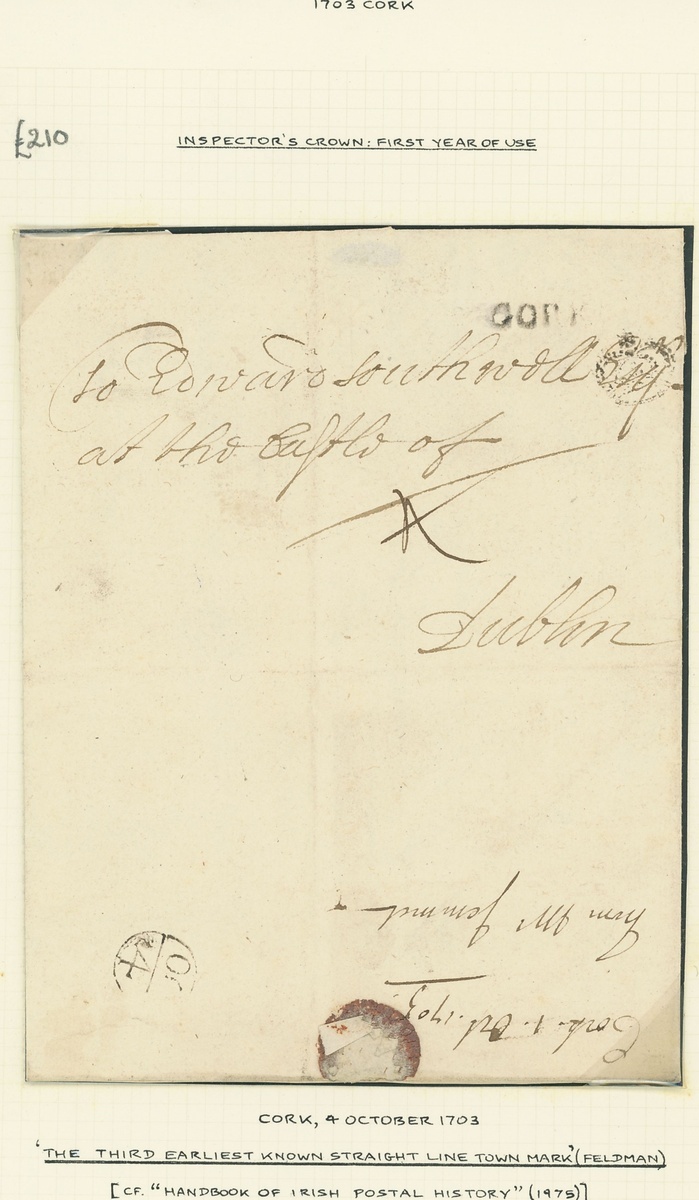 1703 CORK
£210
INSPECTOR'S CROWN: FIRST YEAR OF USE
CORK
To Edward Southwell Esq
at the Castle of
Dublin
from Mr
Cork 1. Oct. 1703.
4 OC
CORK, 4 OCTOBER 1703
'THE THIRD EARLIEST KNOWN STRAIGHT LINE TOWN MARK' (FELDMAN)
[CF. "HANDBOOK OF IRISH POSTAL HISTORY" (1975)]